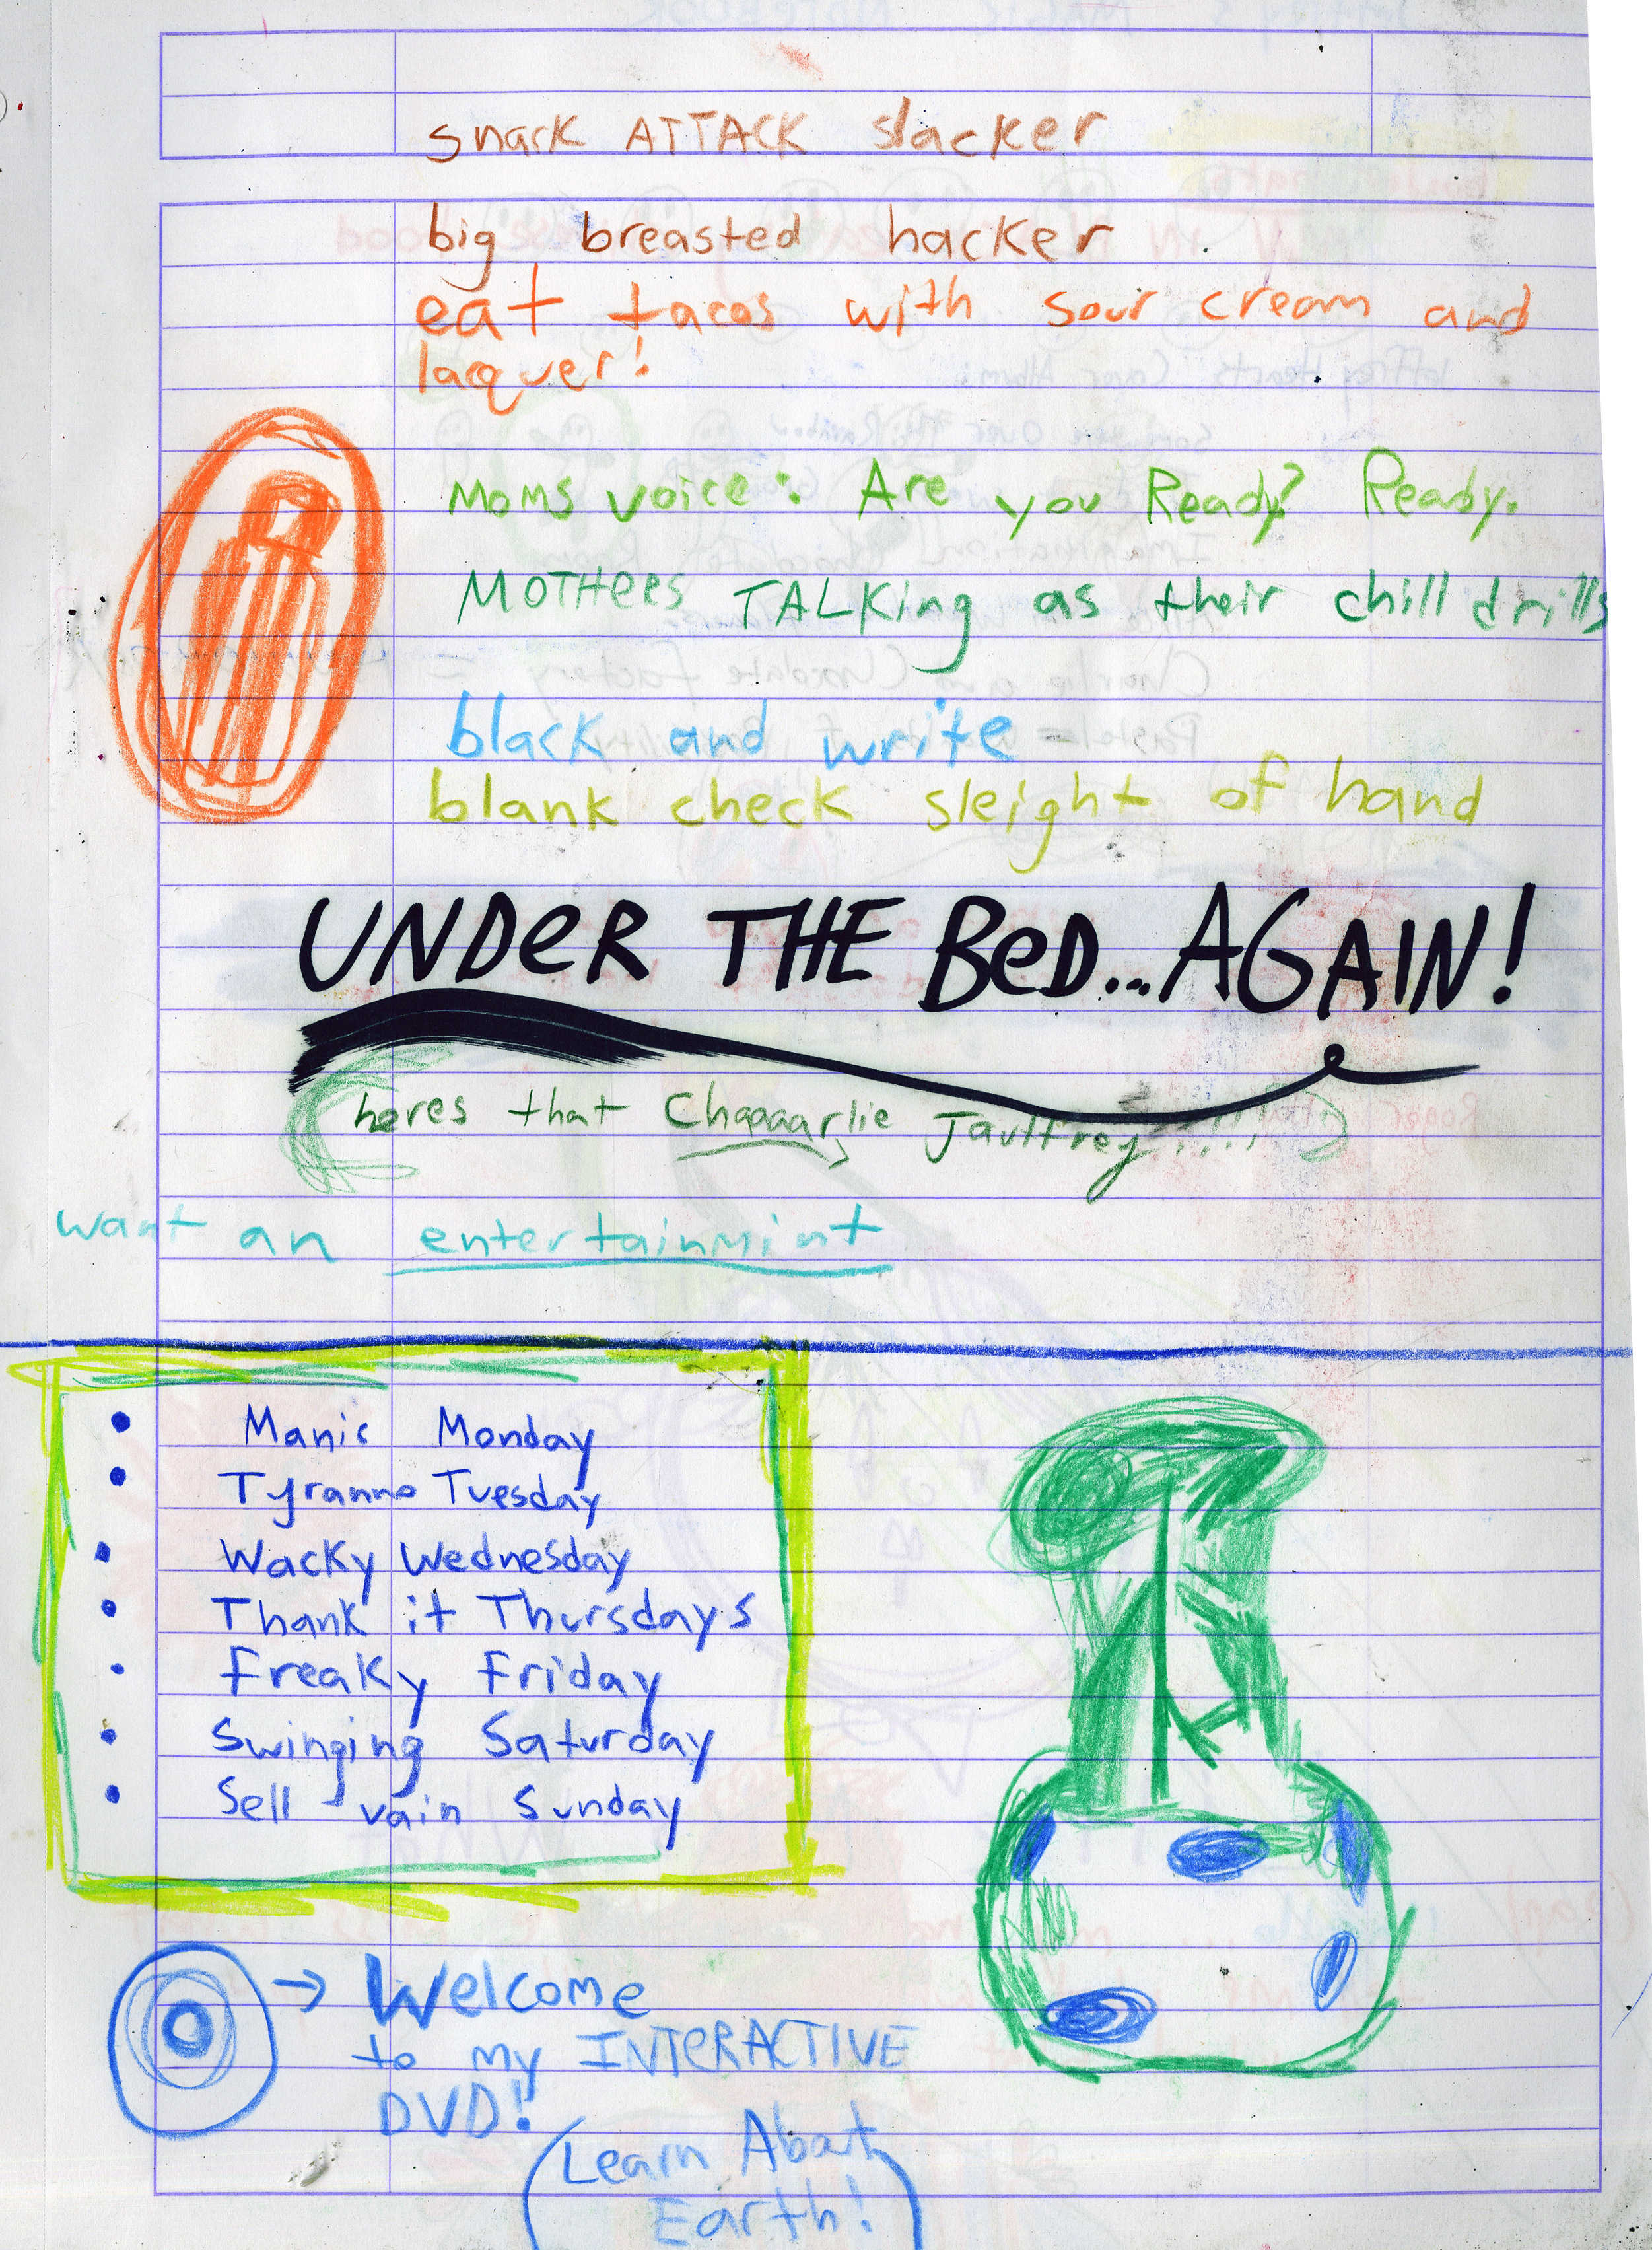 snark ATTACK slacker
big breasted hacker
eat tacos with sour cream and
laquer!
Moms voice: Are you Ready? Ready.
MOTHERS TALKing as their chill drills
black and write
blank check sleight of hand
UNDeR THE BeD...AGAIN!
heres that Chaaaarlie Jaulfrey......
want an entertainmint
• Manic Monday
• Tyranno Tuesday
• Wacky Wednesday
• Thank it Thursdays
• Freaky Friday
• Swinging Saturday
• Sell-vain Sunday
→ Welcome
to my INTeRACTIVE
DVD!
(Learn About
Earth!)